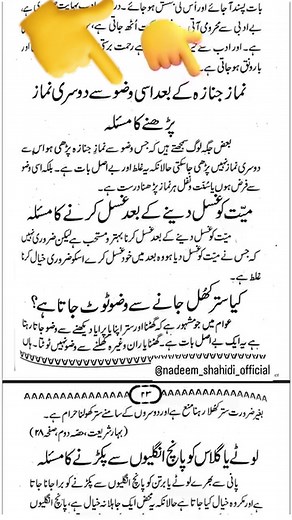 بات پسند آ جائے اور اُس کی بخشش ہو جائے۔
بے ادبی سے محرومی آتی
ہے۔ اور ادب سے
بارونق ہو جاتی ہے۔
نماز جنازہ کے بعد اسی وضو سے دوسری نماز
پڑھنے کا مسئلہ
بعض جگہ لوگ سمجھتے ہیں کہ جس وضو سے نماز جنازہ پڑھی ہو اس سے
دوسری نماز نہیں پڑھی جا سکتی حالانکہ یہ غلط اور بے اصل بات ہے۔ بلکہ اسی وضو
سے فرض ہوں یا سنت و نفل ہر نماز پڑھنا درست ہے۔
میّت کو غسل دینے کے بعد غسل کرنے کا مسئلہ
میّت کو غسل دینے کے بعد غسل کرنا بہتر و مستحب ہے لیکن ضروری نہیں
کہ جس نے میّت کو غسل دیا ہو وہ بعد میں خود غسل کرے اسکو ضروری خیال کرنا
غلط ہے۔
کیا ستر کھل جانے سے وضو ٹوٹ جاتا ہے؟
عوام میں جو مشہور ہے کہ گھٹنا اور ستر اپنا یا پرایا دیکھنے سے وضو جاتا رہتا
ہے یہ ایک بے اصل بات ہے۔ گھٹنا یا ران وغیرہ کھلنے سے وضو نہیں ٹوٹتا۔ ہاں
@nadeem_shahidi_official
۲۳
بغیر ضرورت ستر کھلا رہنا منع ہے اور دوسروں کے سامنے ستر کھولنا حرام ہے۔
(بہار شریعت، حصہ دوم، صفحہ ۲۸)
لوٹے یا گلاس کو پانچ انگلیوں سے پکڑنے کا مسئلہ
پانی سے بھرے لوٹے یا برتن کو پانچ انگلیوں سے پکڑنے کو برا جانا جاتا
ہے اور مکروہ خیال کیا جاتا ہے حالانکہ یہ محض ایک جاہلانہ خیال ہے، پانچ انگلیوں